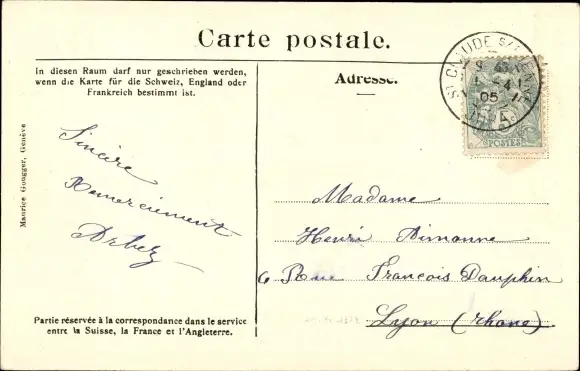 Carte postale.
In diesen Raum darf nur geschrieben werden,
wenn die Karte für die Schweiz, England oder
Frankreich bestimmt ist.
Adresse.
ST CLAUDE
05
5
POSTES
Maurice Gougger, Genève
Sincère
Remerciement
Arbez
Madame
Henri Aimonne
6 Rue François Dauphin
Lyon (Rhone)
Partie réservée à la correspondance dans le service
entre la Suisse, la France et l'Angleterre.